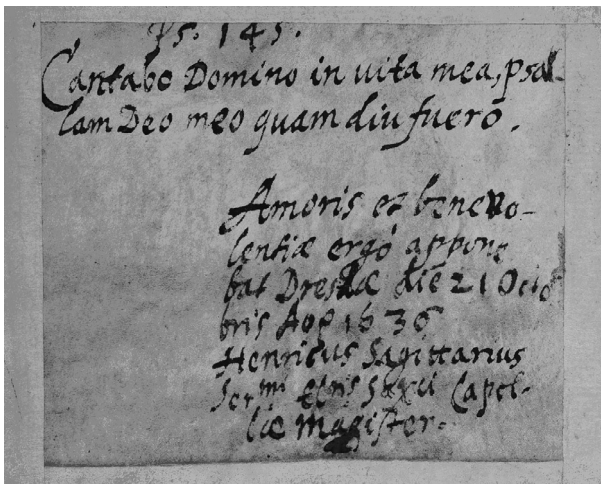 Ps. 145.
Cantabo Domino in vita mea, psal-
lam Deo meo quam diu fuero.
Amoris et benevo-
lentiæ ergò appone
bat Dresdæ die 21 Octo
bris Aoͤ 1636
Henricus Sagittarius
Sermi Elris Saxci Capel-
læ Magister.